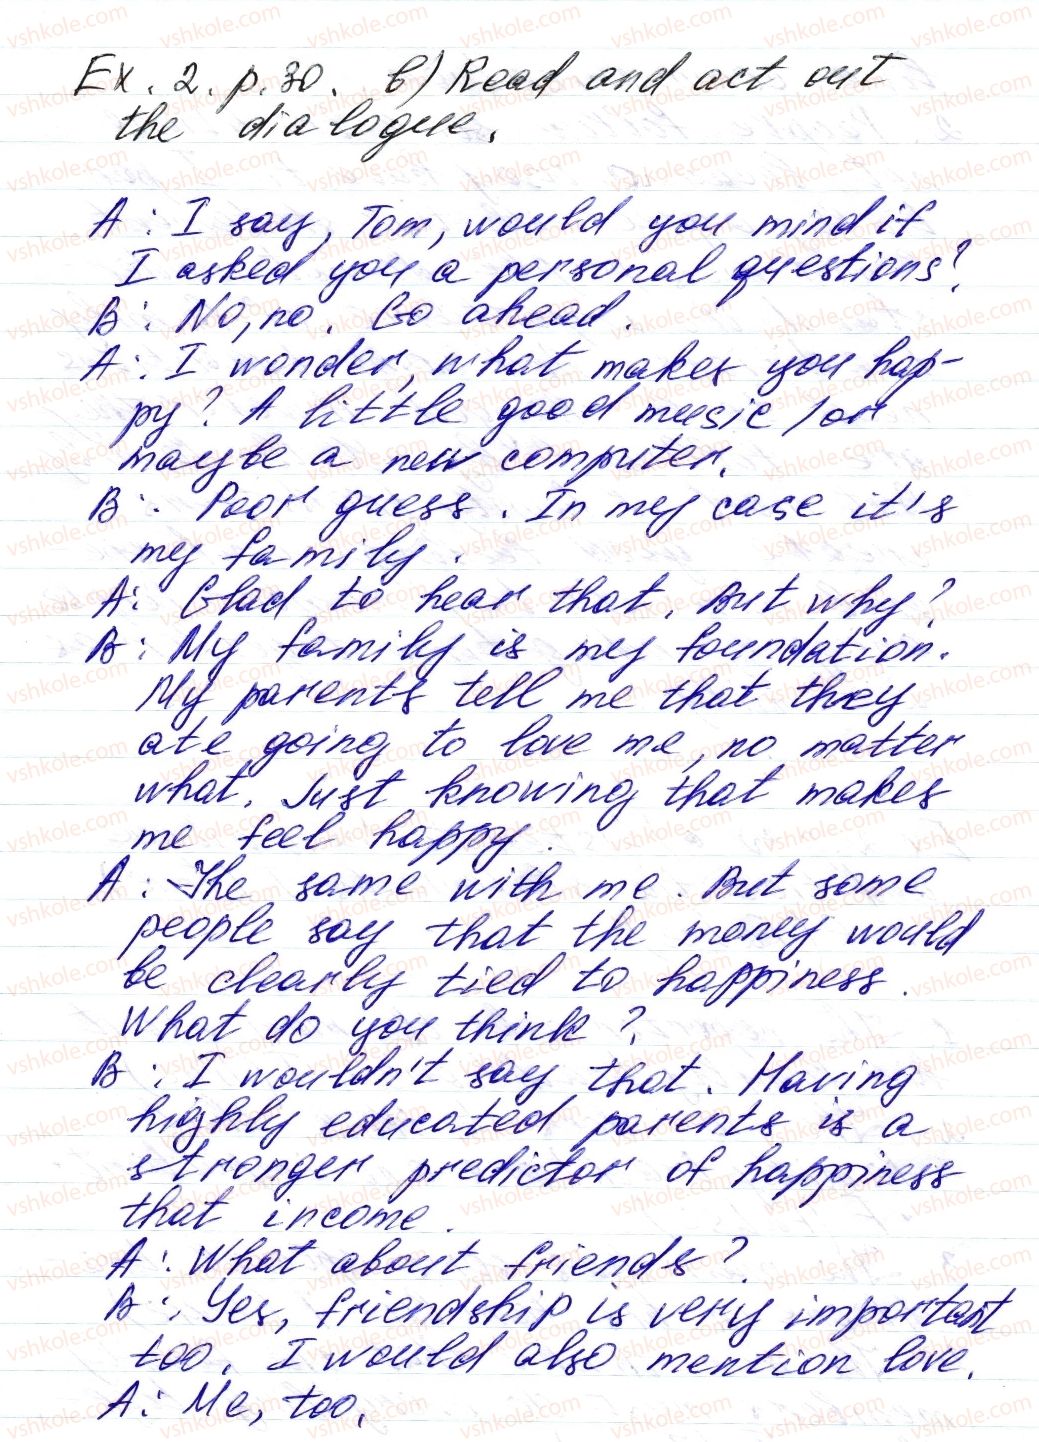 Ex. 2. p. 30. b) Read and act out
the dialogue.
A: I say, Tom, would you mind if
I asked you a personal questions?
B: No, no. Go ahead.
A: I wonder, what makes you hap-
py? A little good music / or
maybe a new computer.
B: Poor guess. In my case it's
my family.
A: Glad to hear that. But why?
B: My family is my foundation.
My parents tell me that they
ate going to love me, no matter
what. Just knowing that makes
me feel happy.
A: The same with me. But some
people say that the money would
be clearly tied to happiness.
What do you think?
B: I wouldn't say that. Having
highly educated parents is a
stronger predictor of happiness
that income.
A: What about friends?
B: Yes, friendship is very important
too. I would also mention love.
A: Me, too.
vshkole.com